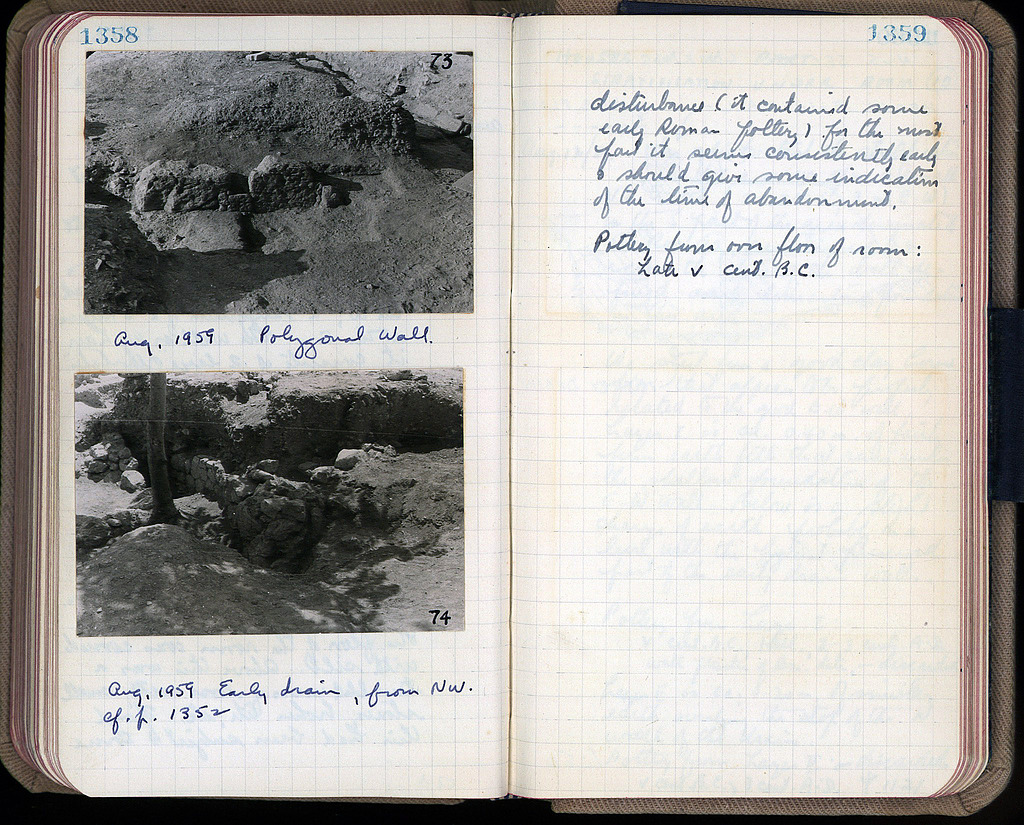 1358
73
Aug, 1959 Polygonal Wall.
74
Aug, 1959 Early drain, from NW.
cf. p. 1352
1359
disturbance (it contained some
early Roman pottery) for the most
part it seems consistently early
& should give some indication
of the time of abandonment.
Pottery from over floor of room:
Late V cent. B.C.